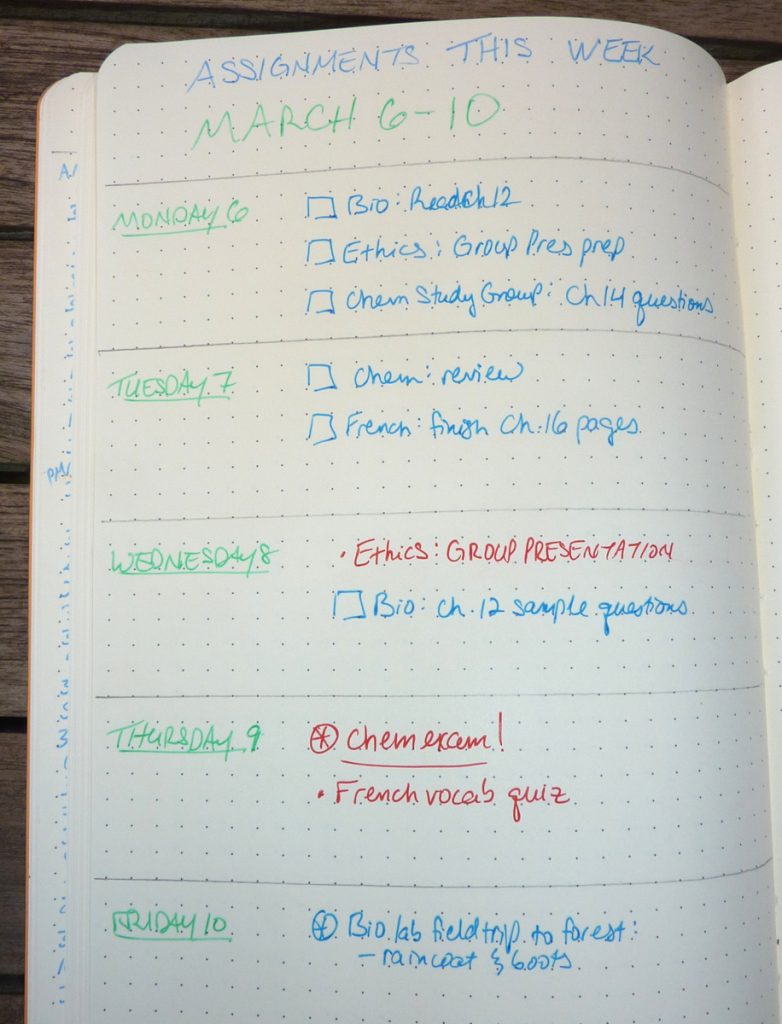 ASSIGNMENTS THIS WEEK
MARCH 6-10
MONDAY 6
Bio: Read Ch 12
Ethics: Group Pres prep
Chem Study Group: Ch 14 questions
TUESDAY 7
Chem: review
French: finish Ch. 16 pages
WEDNESDAY 8
• Ethics: GROUP PRESENTATION
Bio: Ch. 12 sample questions
THURSDAY 9
Chem exam!
• French vocab quiz
FRIDAY 10
Bio lab field trip to forest:
- raincoat & boots
PM